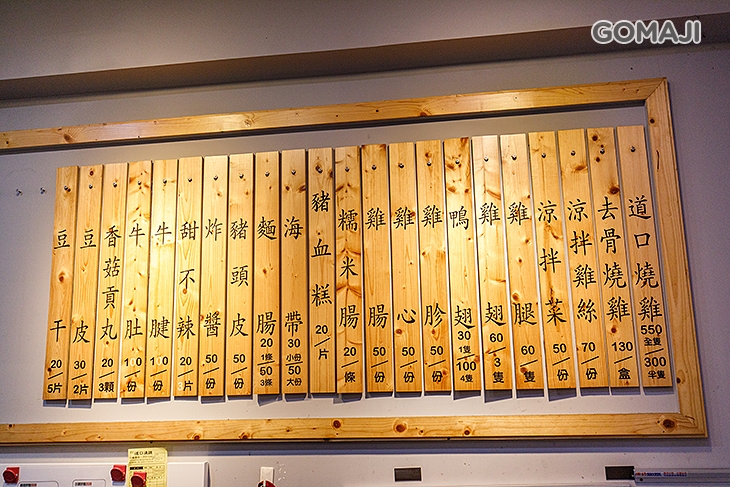 GOMAJI
道口燒雞 550/全隻 300/半隻
去骨燒雞 130/盒
涼拌雞絲 70/份
涼拌菜 50/份
雞腿 60/隻
雞翅 60/3隻
鴨翅 30/1隻 100/4隻
雞胗 50/份
雞心 50/份
雞腸 50/份
糯米腸 20/條
豬血糕 20/片
海帶 30/小份 50/大份
麵腸 20/1條 50/3條
豬頭皮 50/份
炸醬 50/份
甜不辣 20/片
牛腱 100/份
牛肚 100/份
香菇貢丸 20/3顆
豆皮 30/2片
豆干 20/5片